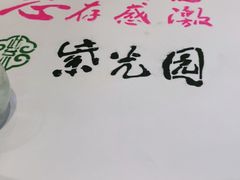 心存感激
紫光园